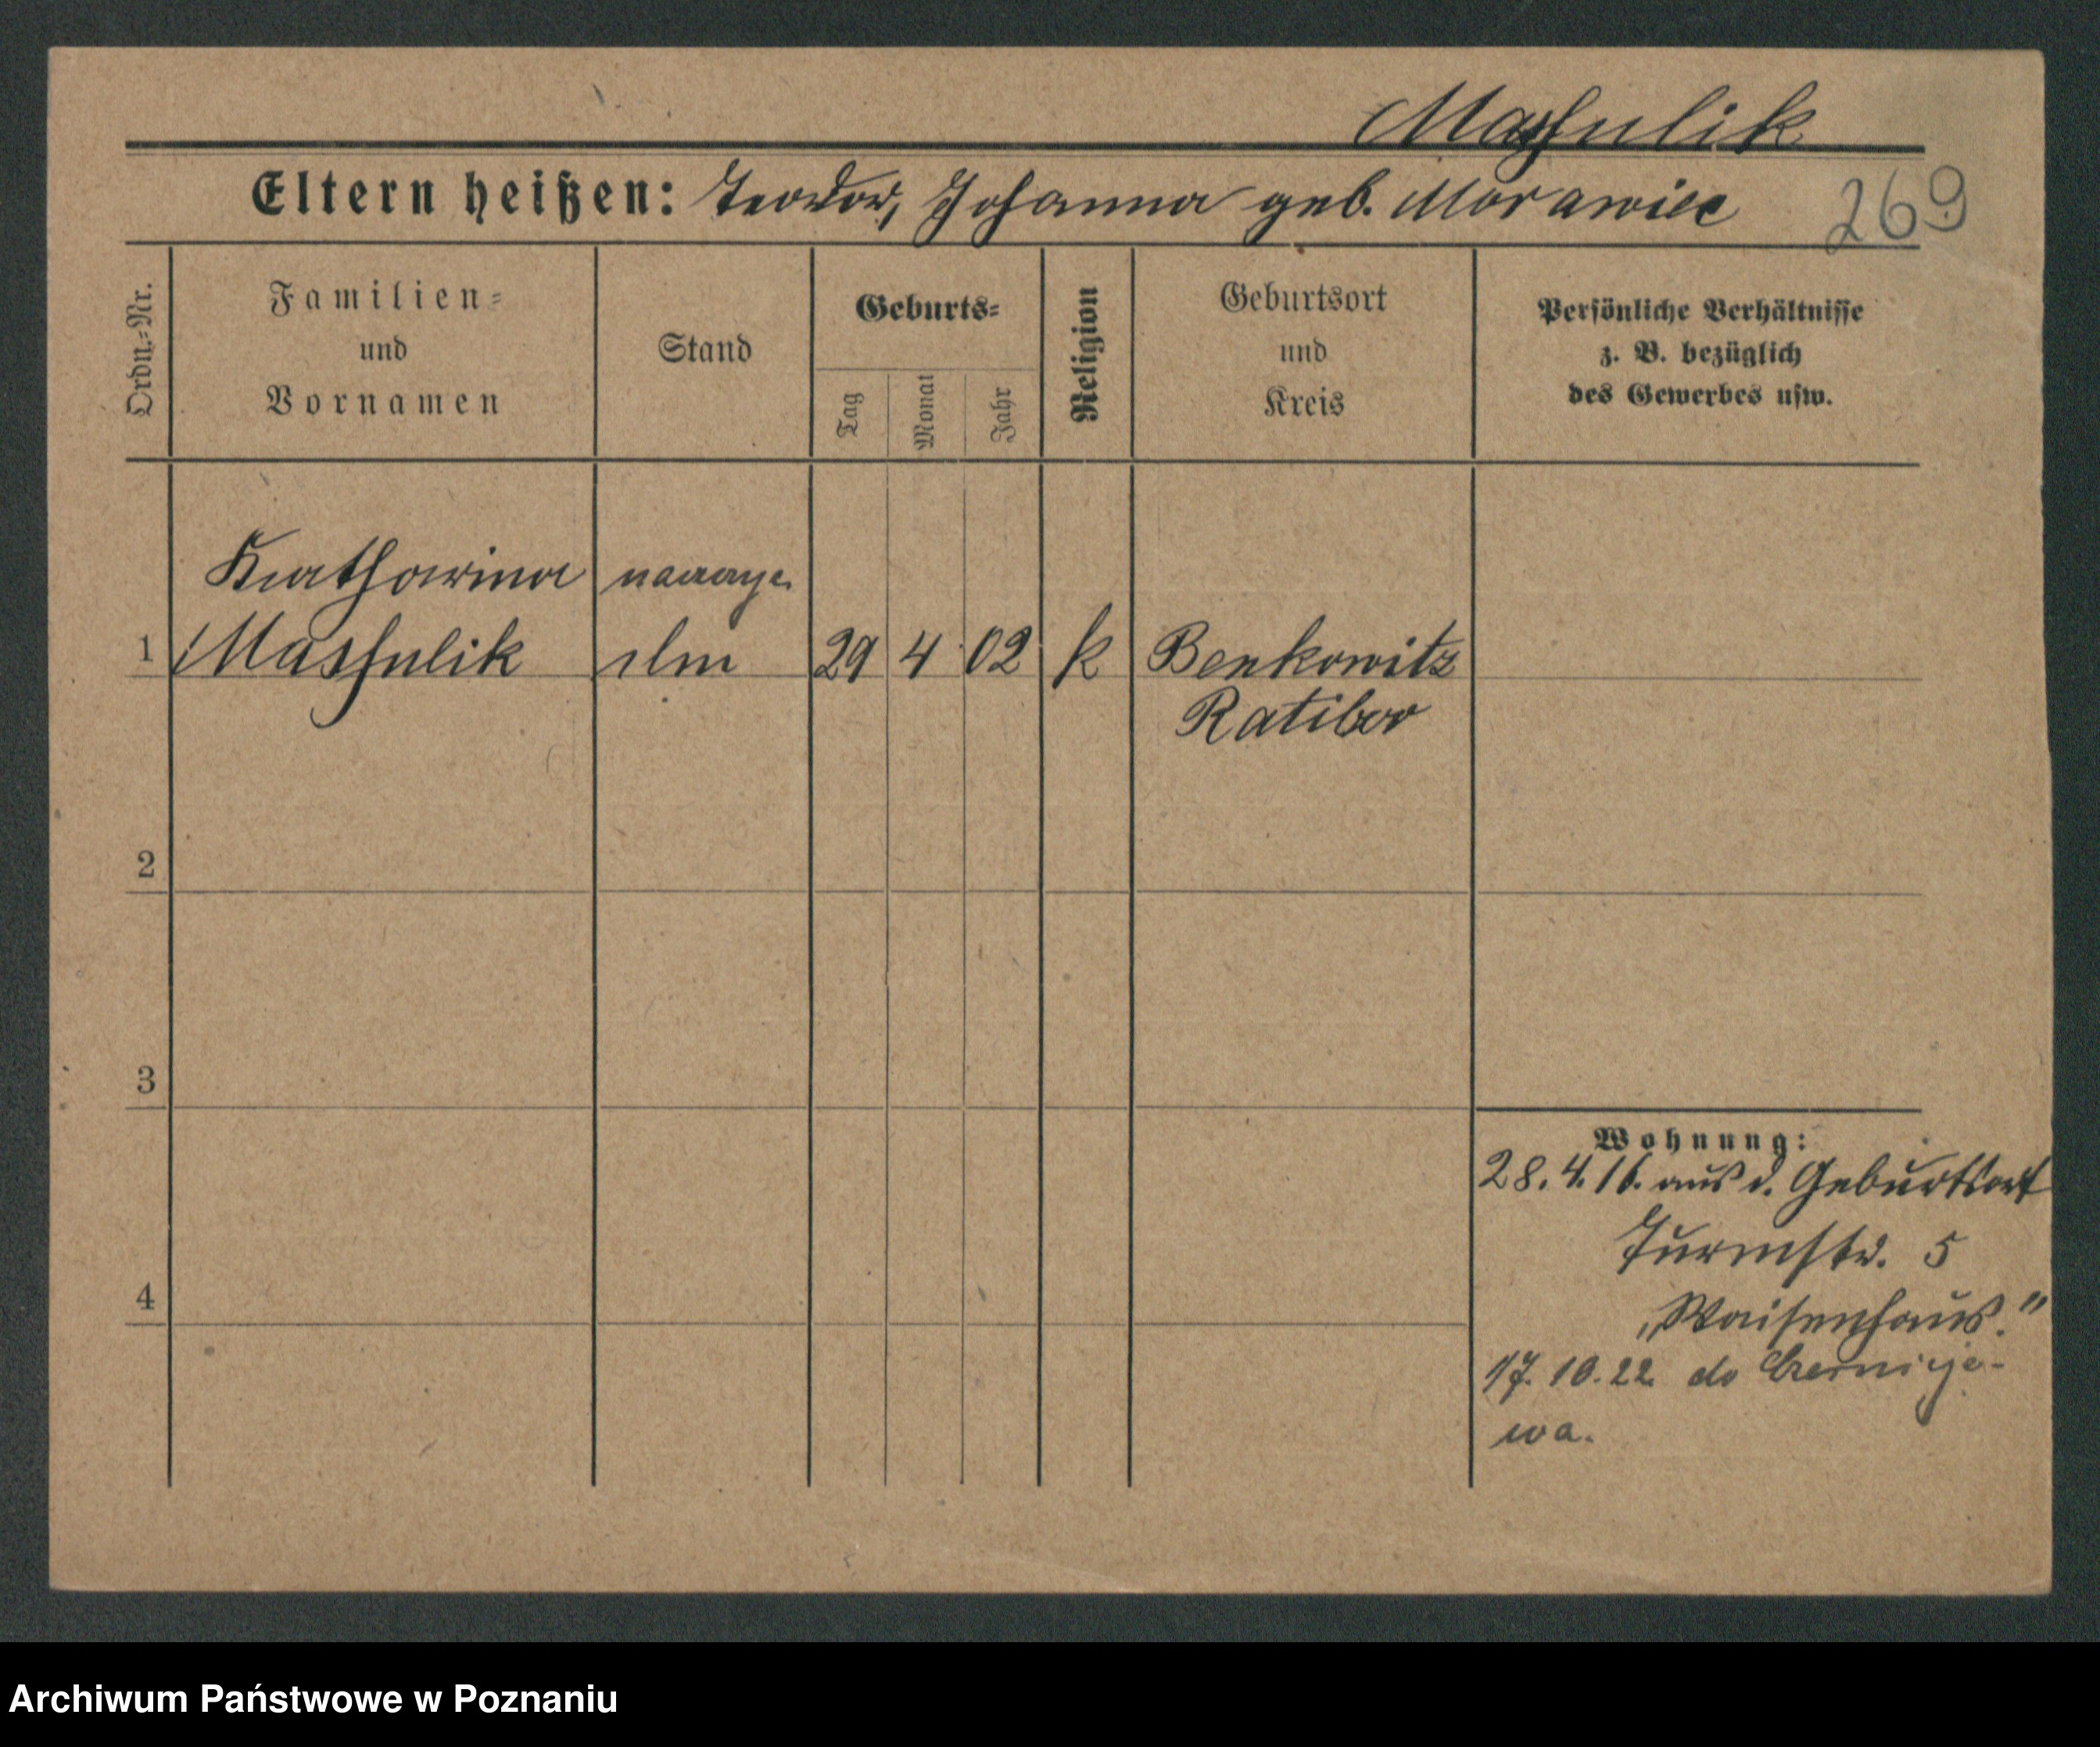 Mashulik
Eltern heißen: Teodor, Johanna geb. Morawiec
269
Ordn.-Nr.
Familien-
und
Vornamen
Stand
Geburts-
Tag
Monat
Jahr
Religion
Geburtsort
und
Kreis
Persönliche Verhältnisse
z. B. bezüglich
des Gewerbes usw.
Katharina
1 Mashulik 29 4 02 k Benkowitz
Ratibor
2
3
4
Wohnung:
28. 4. 16. aus d. Geburtsort
Turmstr. 5
„Waisenhaus."
17. 10. 22. do Czernieje-
wa.
Archiwum Państwowe w Poznaniu